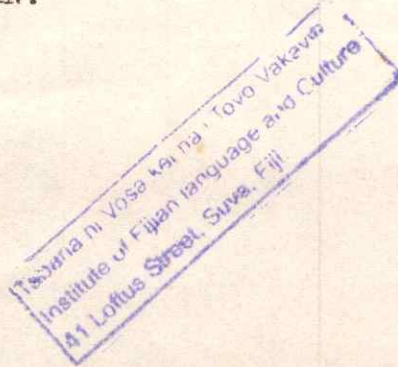 Tabana ni Vosa kei na i Tovo Vakaviti
Institute of Fijian language and Culture
41 Loftus Street, Suva, Fiji